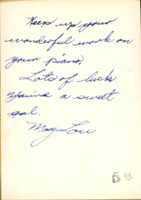 Keep up your
wonderful work on
your piano.
Lots of luck
You're a sweet
gal.
Mary Lou